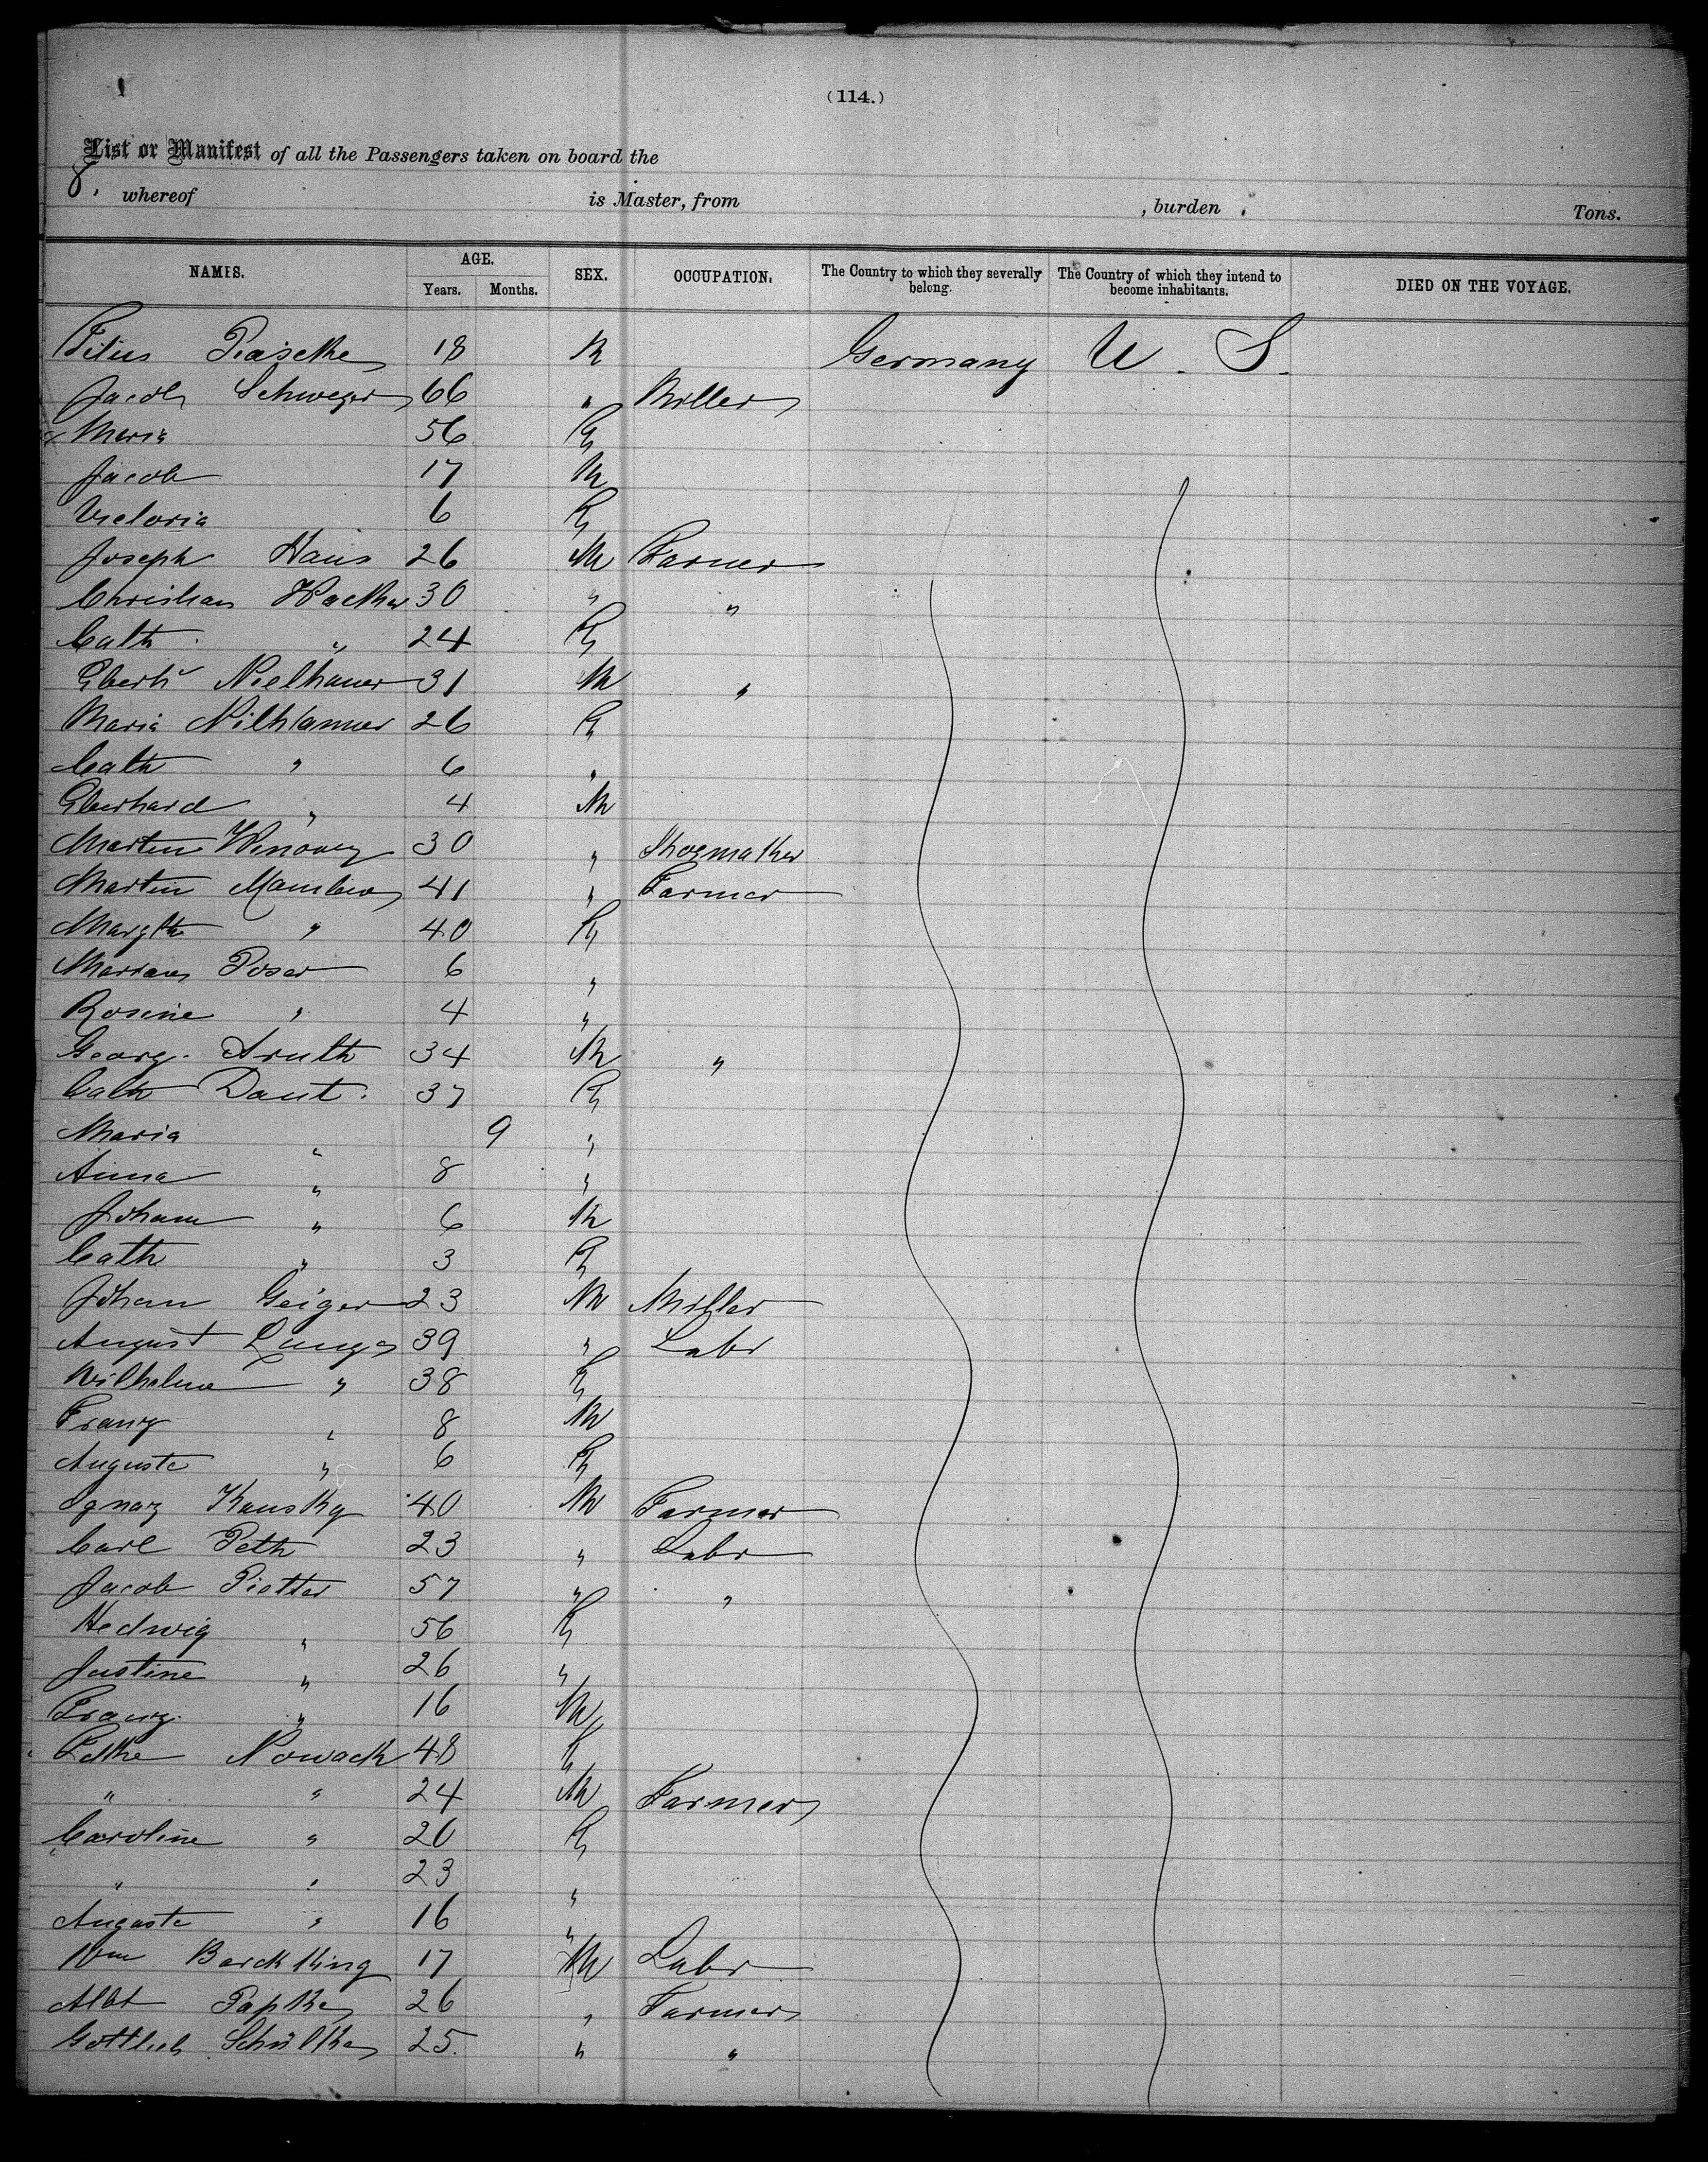 (114.)
List or Manifest of all the Passengers taken on board the
8. whereof is Master, from , burden Tons.
NAMES. AGE. SEX. OCCUPATION. The Country to which they severally belong. The Country of which they intend to become inhabitants. DIED ON THE VOYAGE.
Years. Months.
18 M Germany U. S.
Jacob Schweger 66 " Miller
Maria 56 F
Jacob 17 M
Victoria 6 F
Joseph Haus 26 M Farmer
Christian Wacker 30 " "
Cath " 24 F
31 M "
Maria 26 F
Cath " 6 "
Eberhard " 4 M
Martin 30 " Shoemaker
Martin 41 " Farmer
Margthe " 40 F
Poser 6 "
Rosine " 4 "
Georg. 34 M "
Cath Daut. 37 F
Maria " 9 "
Anna " 8 "
Johann " 6 M
Cath " 3 F
Johann Geiger 23 M Miller
August Lange 39 " Labr
Wilhelme " 38 F
Franz " 8 M
Auguste " 6 F
Ignaz Kausky 40 M Farmer
Carl Peth 23 " Labr
Jacob 57 " "
Hedwig " 56 F
Justine " 26 "
Franz. " 16 M
Nowack 48 F
" " 24 M Farmer
Caroline " 20 F
" " 23 "
Auguste " 16 "
Wm 17 M Labr
Albt Papke 26 " Farmer
Gottlieb 25. " "